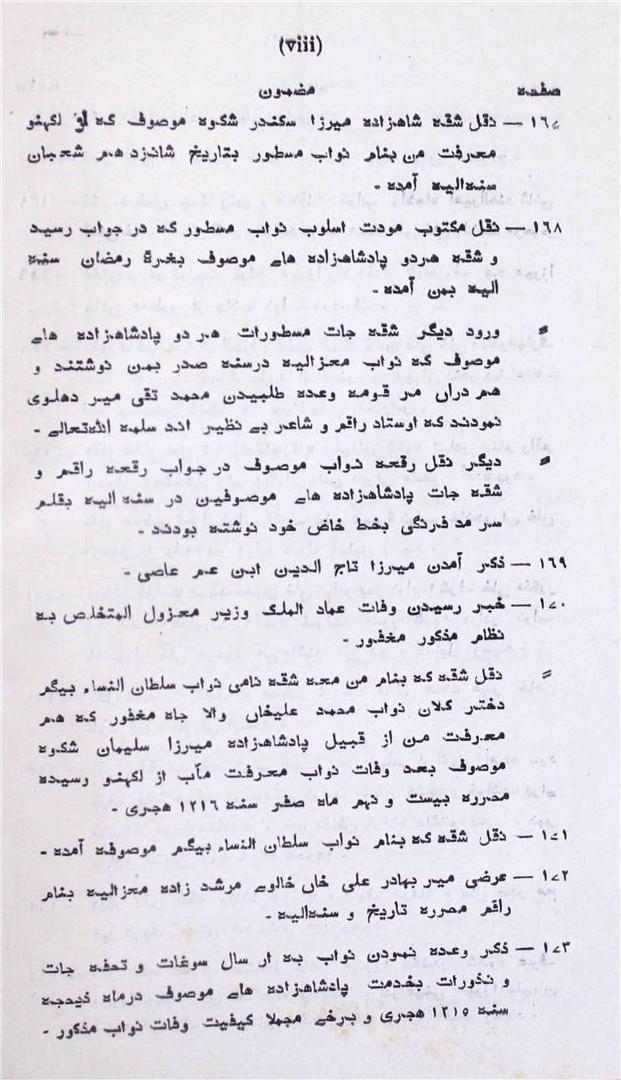 (viii)
صفحه مضمون
۱۶۷ — نقل شقه شاهزاده میرزا سکندر شکوه موصوف که از لکهنو
معرفت من بنام نواب مسطور بتاریخ شانزدهم شعبان
سنه الیه آمده -
۱۶۸ — نقل مکتوب مودت اسلوب نواب مسطور که در جواب رسید
و شقه هر دو پادشاهزاده های موصوف بغرهٔ رمضان سنه
الیه بمن آمده -
〃 ورود دیگر شقه جات مسطورات هر دو پادشاهزاده های
موصوف که نواب معزالیه در سنه صدر بمن نوشتند و
هم دران مر قومه وعده طلبیدن محمد تقی میر دهلوی
نمودند که اوستاد راقم و شاعر بے نظیر اند سلمه الله تعالے -
〃 دیگر نقل رقعه نواب موصوف در جواب رقعه راقم و
شقه جات پادشاهزاده های موصوفین در سنه الیه بقلم
سر مد فرنگی بخط خاض خود نوشته بودند -
۱۶۹ — ذکر آمدن میرزا تاج الدین ابن عم عاصی -
۱۷۰ — خبر رسیدن وفات عماد الملک وزیر معزول المتخلص به
نظام مذکور مغفور -
〃 نقل شقه که بنام من معه شقه نامی نواب سلطان النساء بیگم
دختر کلان نواب محمد علیخان والا جاه مغفور که هم
معرفت من از قبیل پادشاهزاده میرزا سلیمان شکوه
موصوف بعد وفات نواب معرفت مآب از لکهنو رسیده
محرره بیست و نهم ماه صفر سنه ۱۲۱۶ هجری -
۱۷۱ — نقل شقه که بنام نواب سلطان النساء بیگم موصوفه آمده -
۱۷۲ — عرضی میر بهادر علی خاں خالوے مرشد زاده معزالیه بنام
راقم محرره تاریخ و سنه الیه -
۱۷۳ — ذکر وعده نمودن نواب به ار سال سوغات و تحفه جات
و نذورات بخدمت پادشاهزاده های موصوف در ماه ذیحجه
سنه ۱۲۱۵ هجری و برخے مجملا کیفیت وفات نواب مذکور -